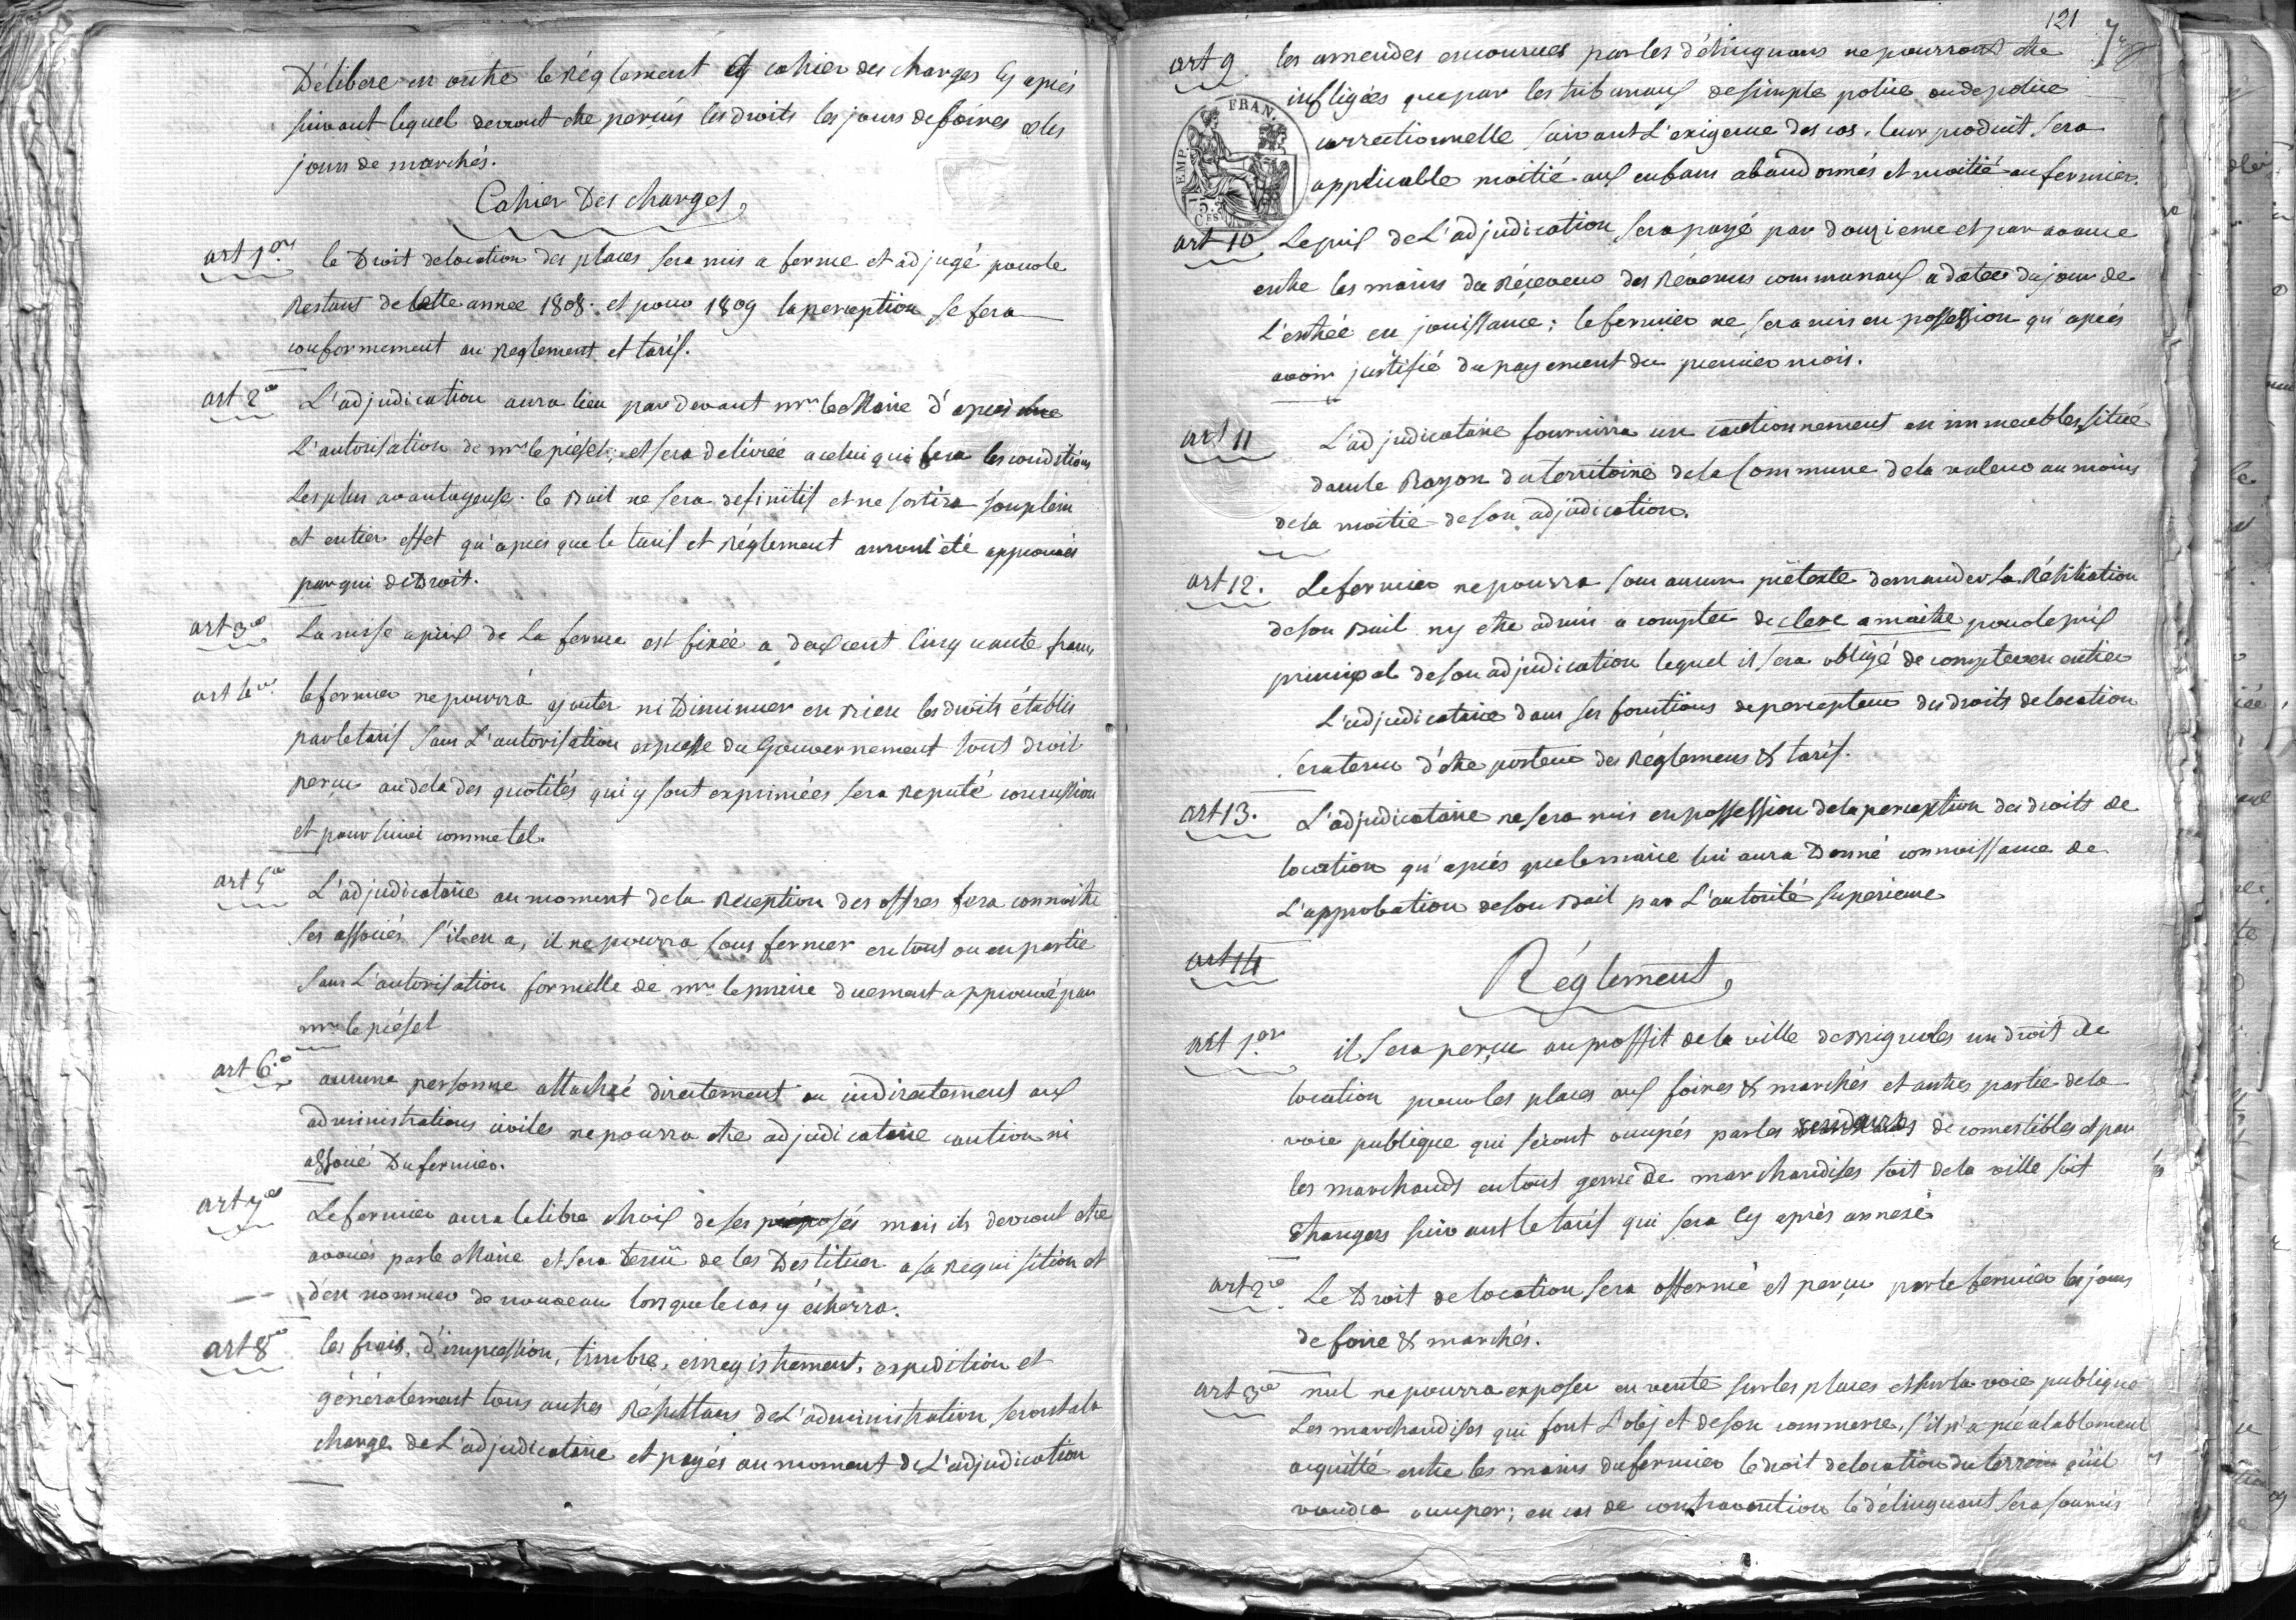 Délibere en outre le Réglement & cahier des charges cy après
suivant lequel devront etre perçus les droits les jours de foires & les
jours de marchés.
Cahier Des charges,
art 1er. le Droit de location des places sera mis a ferme et adjugé pour le
Restant de cette année 1808. et pour 1809 la perception se fera
conformement au Reglement et tarif.
art 2e L'adjudication aura lieu par devant mr. le Maire d'après
L'autorisation de mr. le préfet; et sera delivrée a celui qui fera les conditions
Les plus avantageuse. le Bail ne sera définitif et ne sortira son plein
et entier effet qu'apres que le tarif et Réglement auront été approuvés
par qui de Droit.
art 3e La mise a prix de La ferme est fixée a deux cent cinquante francs
art 4e. le fermier ne pourra ajouter ni Diminuer en Rien les droits établis
par le tarif sans L'autorisation expresse du Gouvernement tout droit
perçu audela des quotités qui y sont exprimées sera Reputé concussion
et poursuivi comme tel.
art 5e L'adjudicataire au moment de la Reception des offres fera connoitre
Ses associés s'il en a, il ne pourra sous fermer en tout ou en partie
sans L'autorisation formelle de mr. le maire duement approuvé par
mr. le préfet
art 6.e aucune personne attachée directement ou indirectement aux
administrations civiles ne pourra etre adjudicataire caution ni
associé Du fermier.
art 7e Le fermier aura le libre choix de ses préposés mais ils devront etre
avoués par le Maire et sera tenu de les Destituer a sa Requisition et
d'en nommer de nouveau lorsque le cas y écherra.
art 8e les frais, d'impression, timbre, enregistrement, expedition et
généralement tous autres Résultans de L'administration, seront a la
charge de L'adjudicataire et payés au moment de L'adjudication
121
art 9 les amendes encourues par les délinquans ne pourront etre
infligées que par les tribunaux de simple police ou de police
correctionnelle suivant L'exigence des cas, leur produit sera
applicable moitié aux enfans abandonnés et moitié au fermier.
FRAN.
EMP.
75.
CES
art 10 Le prix de L'adjudication sera payé par douzieme et par avance
entre les mains du Réçeveur des Revenus communaux a dater du jour de
L'entrée en jouissance; le fermier ne sera mis en possession qu'après
avoir justifié du payement du premier mois.
art 11 L'adjudicataire fournira un cautionnement en immeubles situé
dans le Rayon du territoire de la Commune de la valeur au moins
de la moitié de son adjudication.
art 12. Le fermier ne pourra sous aucun prétexte demander la Résiliation
de son Bail ny etre admis a compter de clerc a maitre pour le prix
principal de son adjudication lequel il sera obligé de compter en entier
L'adjudicataire dans ses fonctions de percepteur des droits de location
sera tenu d'etre porteur des Réglemens & tarif.
art 13. L'adjudicataire ne sera mis en possession de la perception des droits de
location qu'après que le maire lui aura Donné connoissance de
L'approbation de son Bail par L'autorité superieure
art 14
Réglement,
art 1er il sera perçu au proffit de la ville de Brignoles un droit de
location pour les places aux foires & marchés et autres partie de la
voie publique qui seront occupés par les vendeurs de comestibles et par
les marchands en tout genre de marchandises soit de la ville soit
étrangers suivant le tarif qui sera cy après annexé
art 2e Le Droit de location sera affermé et perçu par le fermier les jours
de foire & marchés.
art 3e nul ne pourra exposer en vente sur les places et sur la voie publique
Les marchandises qui font L'objet de son commerce, s'il n'a préalablement
acquitté entre les mains du fermier le droit de location du terrain qu'il
voudra occuper; en cas de contravention le délinquant sera soumis